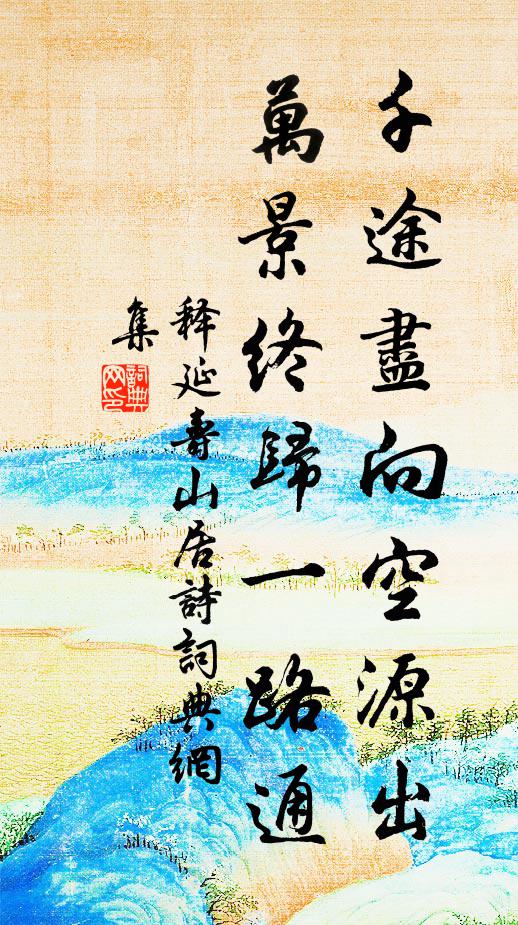 千途盡向空源出
萬景終歸一路通
释延壽山居詩詞典網
集
詞典
网印